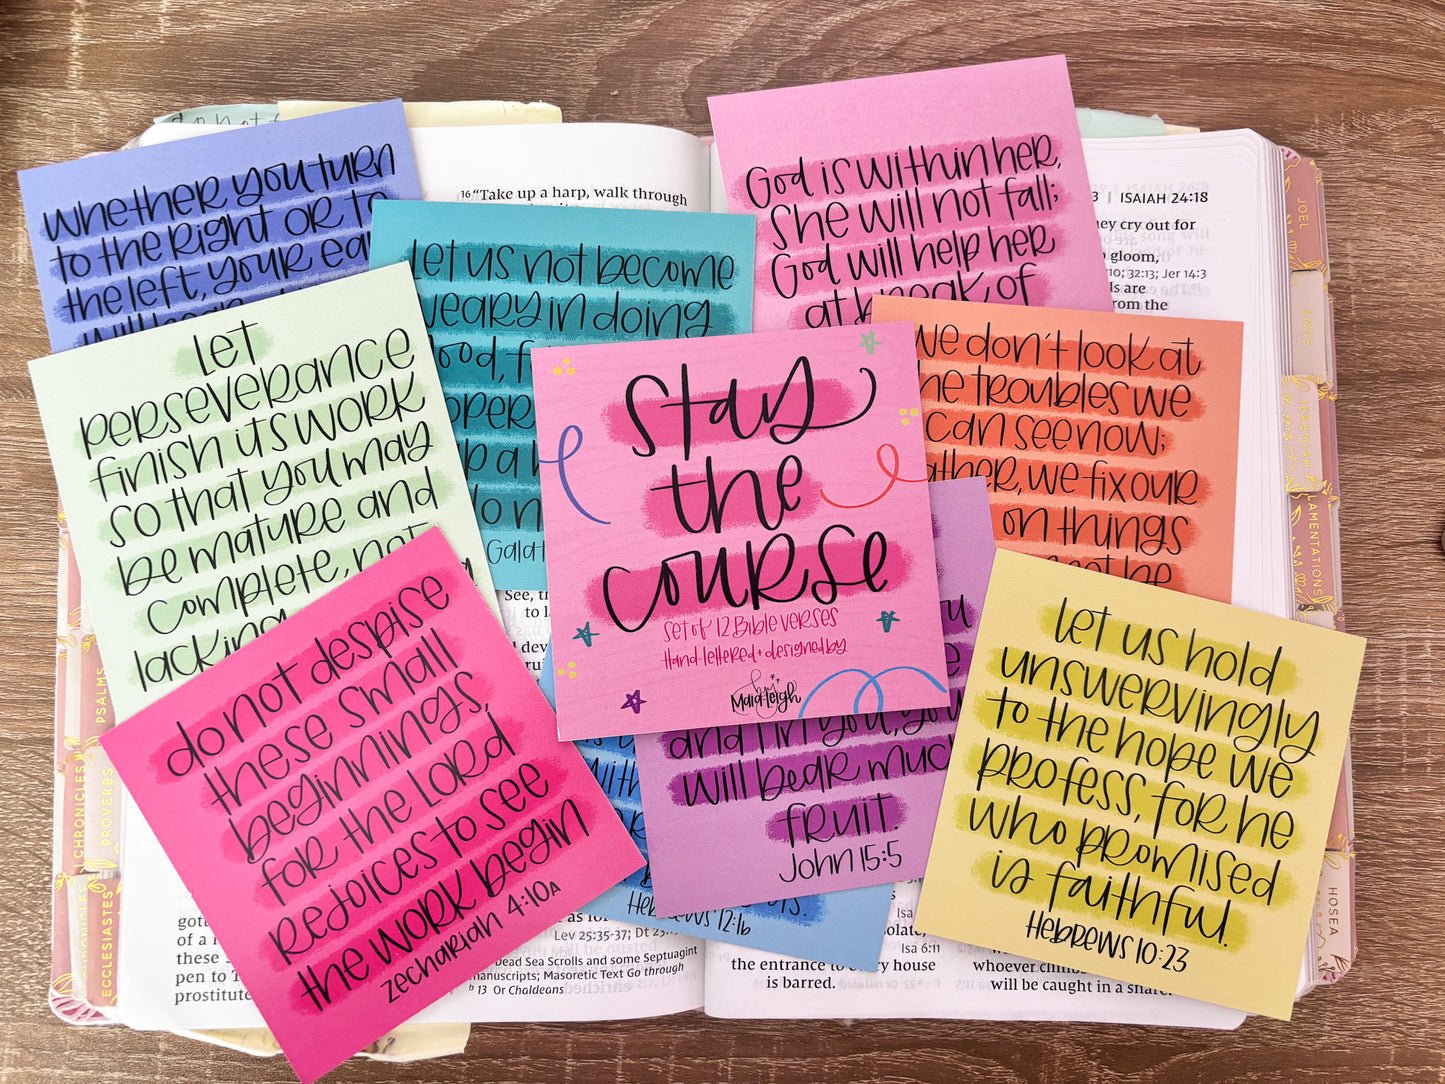 do not
whether you turn
to the right or to
the left, your ear
16 "Take up a harp, walk through
God is within her,
she will not fall;
God will help her
at break of
ISAIAH 24:18
cry out for
gloom,
10; 32:13; Jer 14:3
are
from the
let us not become
weary in doing
let
perseverance
finish its work
so that you may
be mature and
complete, not
lacking
we don't look at
the troubles we
can see now;
rather, we fix our
on things
not be
stay
the
course
set of 12 Bible verses
hand lettered + designed by
by
MaidLeigh
See, th
to la
do not despise
these small
beginnings,
for the Lord
rejoices to see
the work begin
Zechariah 4:10A
and I in you, you
will bear much
fruit.
John 15:5
Hebrews 12:1b
let us hold
unswervingly
to the hope we
profess, for he
who promised
is faithful.
Hebrews 10:23
gott
of a
these
pen to T
prostitute
as fo
Lev 25:35-37; Dt 23:
Dead Sea Scrolls and some Septuagint
manuscripts; Masoretic Text Go through
b 13 Or Chaldeans
Isa
Isa 6:11
the entrance to every house
is barred.
whoever climbs
will be caught in a snare.
JOEL
JEREMIAH
LAMENTATIONS
HOSEA
PSALMS
PROVERBS
CHRONICLES
ECCLESIASTES